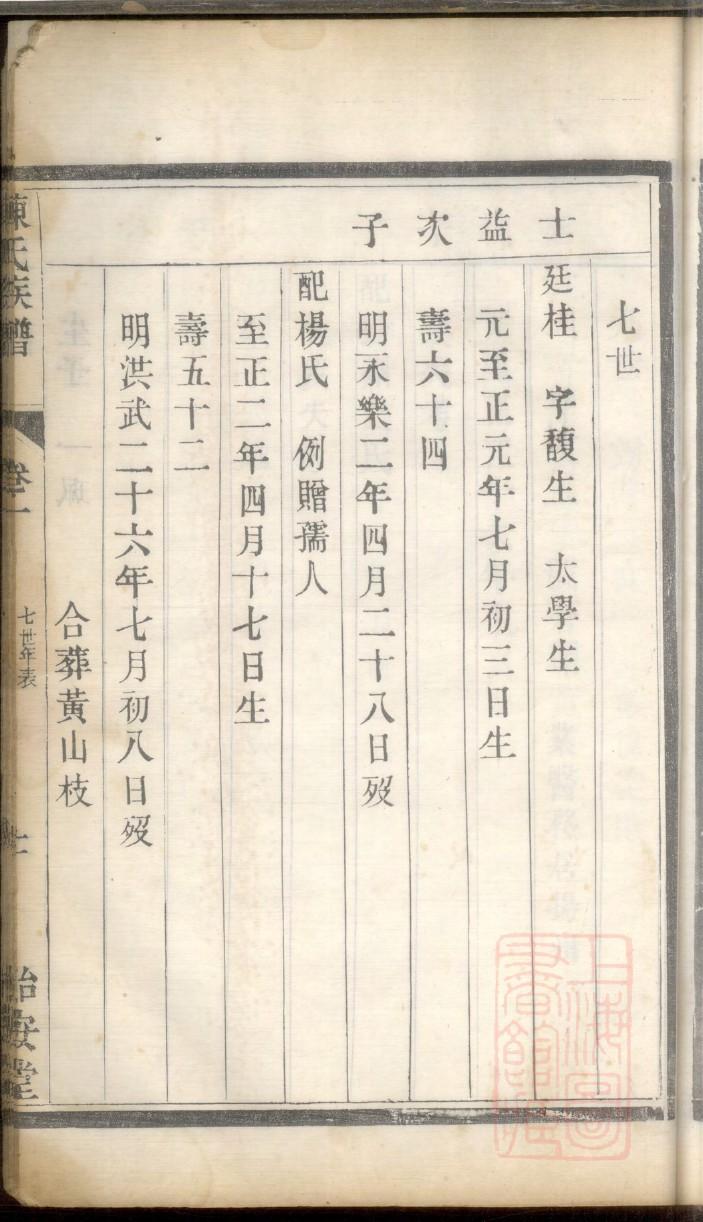 七世
士益次子
廷桂 字馥生 太學生
元至正元年七月初三日生
壽六十四
明永樂二年四月二十八日歿
配楊氏 例贈孺人
至正二年四月十七日生
壽五十二
明洪武二十六年七月初八日歿
合葬黃山枝
陳氏族譜
卷一
七世年表
怡安堂
上海圖書館藏